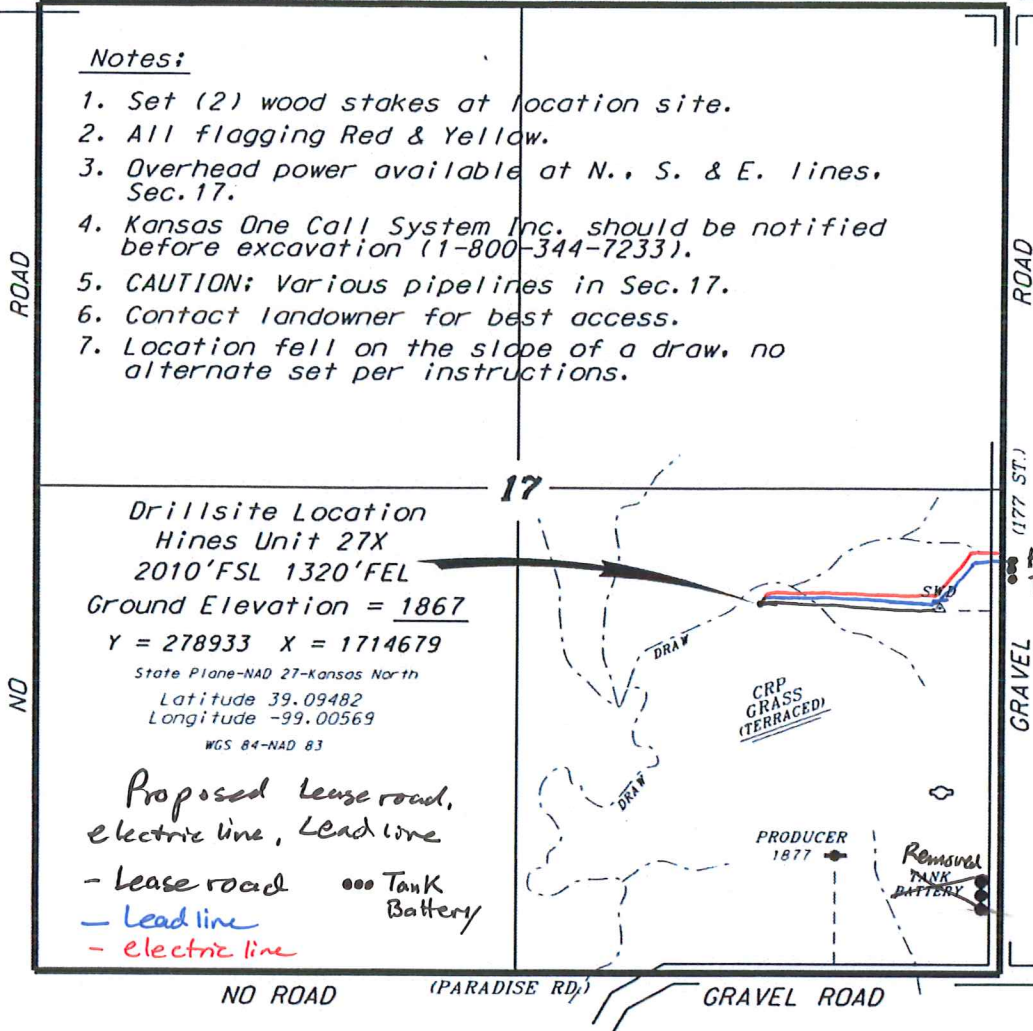 Notes:
1. Set (2) wood stakes at location site.
2. All flagging Red & Yellow.
3. Overhead power available at N., S. & E. lines,
Sec. 17.
4. Kansas One Call System Inc. should be notified
before excavation (1-800-344-7233).
5. CAUTION: Various pipelines in Sec. 17.
6. Contact landowner for best access.
7. Location fell on the slope of a draw, no
alternate set per instructions.
ROAD
ROAD
17
(177 ST.)
Drillsite Location
Hines Unit 27X
2010'FSL 1320'FEL
Ground Elevation = 1867
Y = 278933 X = 1714679
State Plane-NAD 27-Kansas North
Latitude 39.09482
Longitude -99.00569
WGS 84-NAD 83
SWD
DRAW
CRP
GRASS
(TERRACED)
NO
GRAVEL
DRAW
Proposed Lease road,
electric line, Lead line
- Lease road
Tank
Battery
- Lead line
- electric line
PRODUCER
1877
Removed
TANK
BATTERY
NO ROAD
(PARADISE RD.)
GRAVEL ROAD